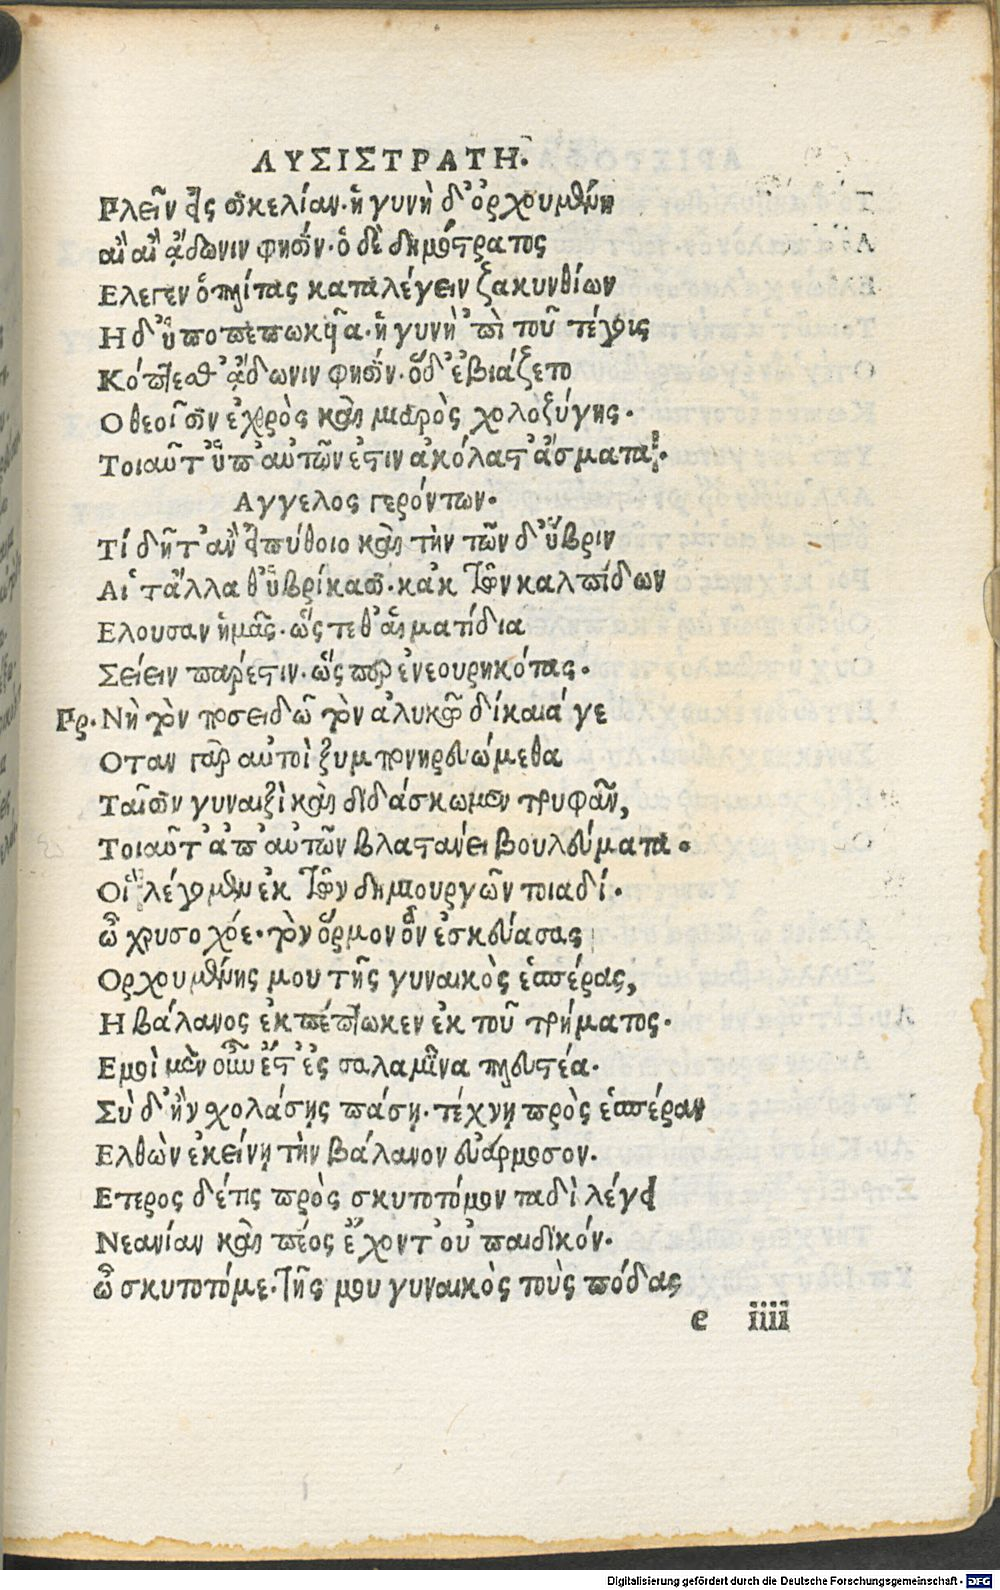 ΛΥΣΙΣΤΡΑΤΗ.
Πλεῖν εἰς σικελίαν. ἡ γυνὴ δ' ὀρχουμένη
αἲ αἲ ἄδωνιν φησίν. ὁ δὲ δημόστρατος
Ελεγεν ὁπλίτας καταλέγειν ζακυνθίων
Η δ' ὑποπεπωκυῖα. ἡ γυνὴ 'πὶ τοῦ τέγους
Κόπτεσθ' ἄδωνιν φησίν. ὅδ' ἐβιάζετο
Ο θεοῖσιν ἐχθρὸς καὶ μιαρὸς χολοζύγης.
Τοιαῦτ' ὑπ' αὐτῶν ἐστιν ἀκόλαστ' ἄσματα.
Αγγελος γερόντων.
Τί δῆτ' ἂν εἰ πύθοιο καὶ τὴν τῶν δ' ὕβριν
Αἳ τἄλλα θ' ὑβρίκασι. κἀκ τῶν καλπίδων
Ελουσαν ἡμᾶς. ὥς τε θ' αἱματίδια
Σείειν πάρεστιν. ὥς περ ἐνεουρηκότας.
Πρ. Νὴ τὸν ποσειδῶ τὸν ἁλυκὸν δίκαιά γε
Οταν γὰρ αὐτοὶ ξυμπονηρευώμεθα
Ταῖσιν γυναιξὶ καὶ διδάσκωμεν τρυφᾶν,
Τοιαῦτ' ἀπ' αὐτῶν βλαστάνει βουλεύματα.
Οἳ λέγομεν ἐκ τῶν δημιουργῶν τοιαδί.
ὦ χρυσοχόε. τὸν ὅρμον ὃν ἐσκεύασας
Ορχουμένης μου τῆς γυναικὸς ἑσπέρας,
Η βάλανος ἐκπέπτωκεν ἐκ τοῦ τρήματος.
Εμοὶ μὲν οὖν ἔστ' ἐς σαλαμῖνα πλευστέα.
Σὺ δ' ἢν χολάσῃς πάσῃ. τέχνῃ πρὸς ἑσπέραν
Ελθὼν ἐκείνῃ τὴν βάλανον ἐνάρμοσον.
Ετερος δέ τις πρὸς σκυτοτόμον ταδὶ λέγει
Νεανίαν καὶ πέος ἔχοντ' οὐ παιδικόν.
ὦ σκυτοτόμε. τῆς μου γυναικὸς τοὺς πόδας
e iiii
Digitalisierung gefördert durch die Deutsche Forschungsgemeinschaft - DFG